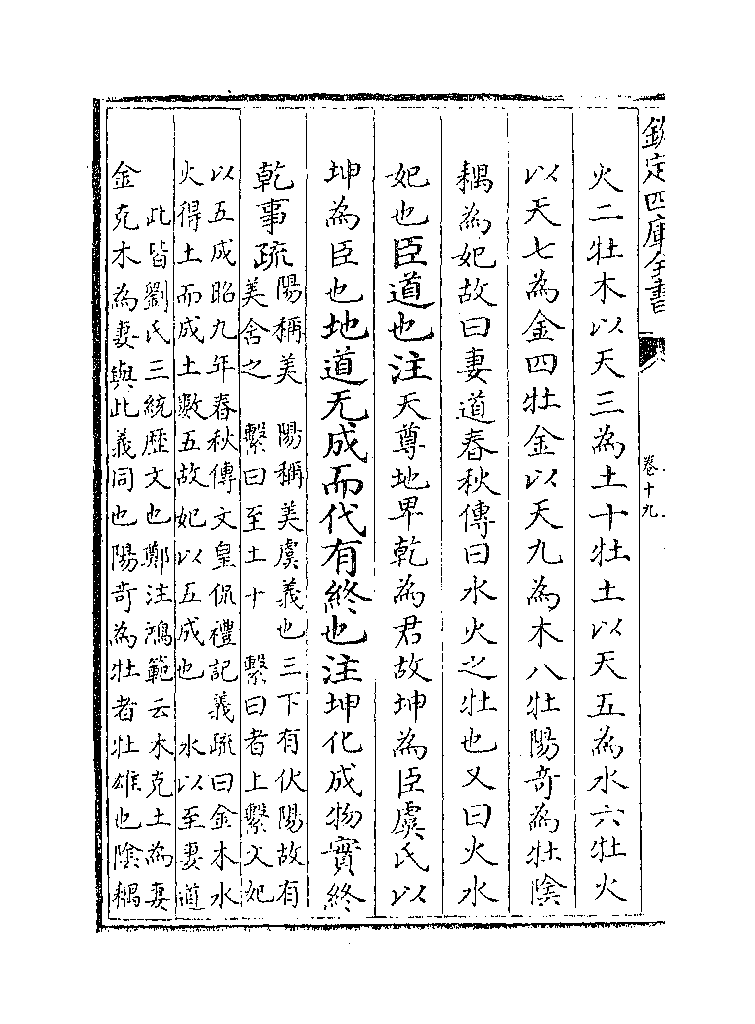 欽定四庫全書
卷十九
火二牡木以天三為土十牡土以天五為水六牡火
以天七為金四牡金以天九為木八牡陽奇為牡陰
耦為妃故曰妻道春秋傳曰水火之牡也又曰火水
妃也臣道也注天尊地卑乾為君故坤為臣虞氏以
坤為臣也地道无成而代有終也注坤化成物實終
乾事疏陽稱美　陽稱美虞義也三下有伏陽故有
美含之　繫曰至土十　繫曰者上繫文妃
以五成昭九年春秋傳文皇侃禮記義疏曰金木水
火得土而成土數五故妃以五成也　水以至妻道
此皆劉氏三統歷文也鄭注鴻範云木克土為妻
金克木為妻與此義同也陽奇為牡者牡雄也陰耦